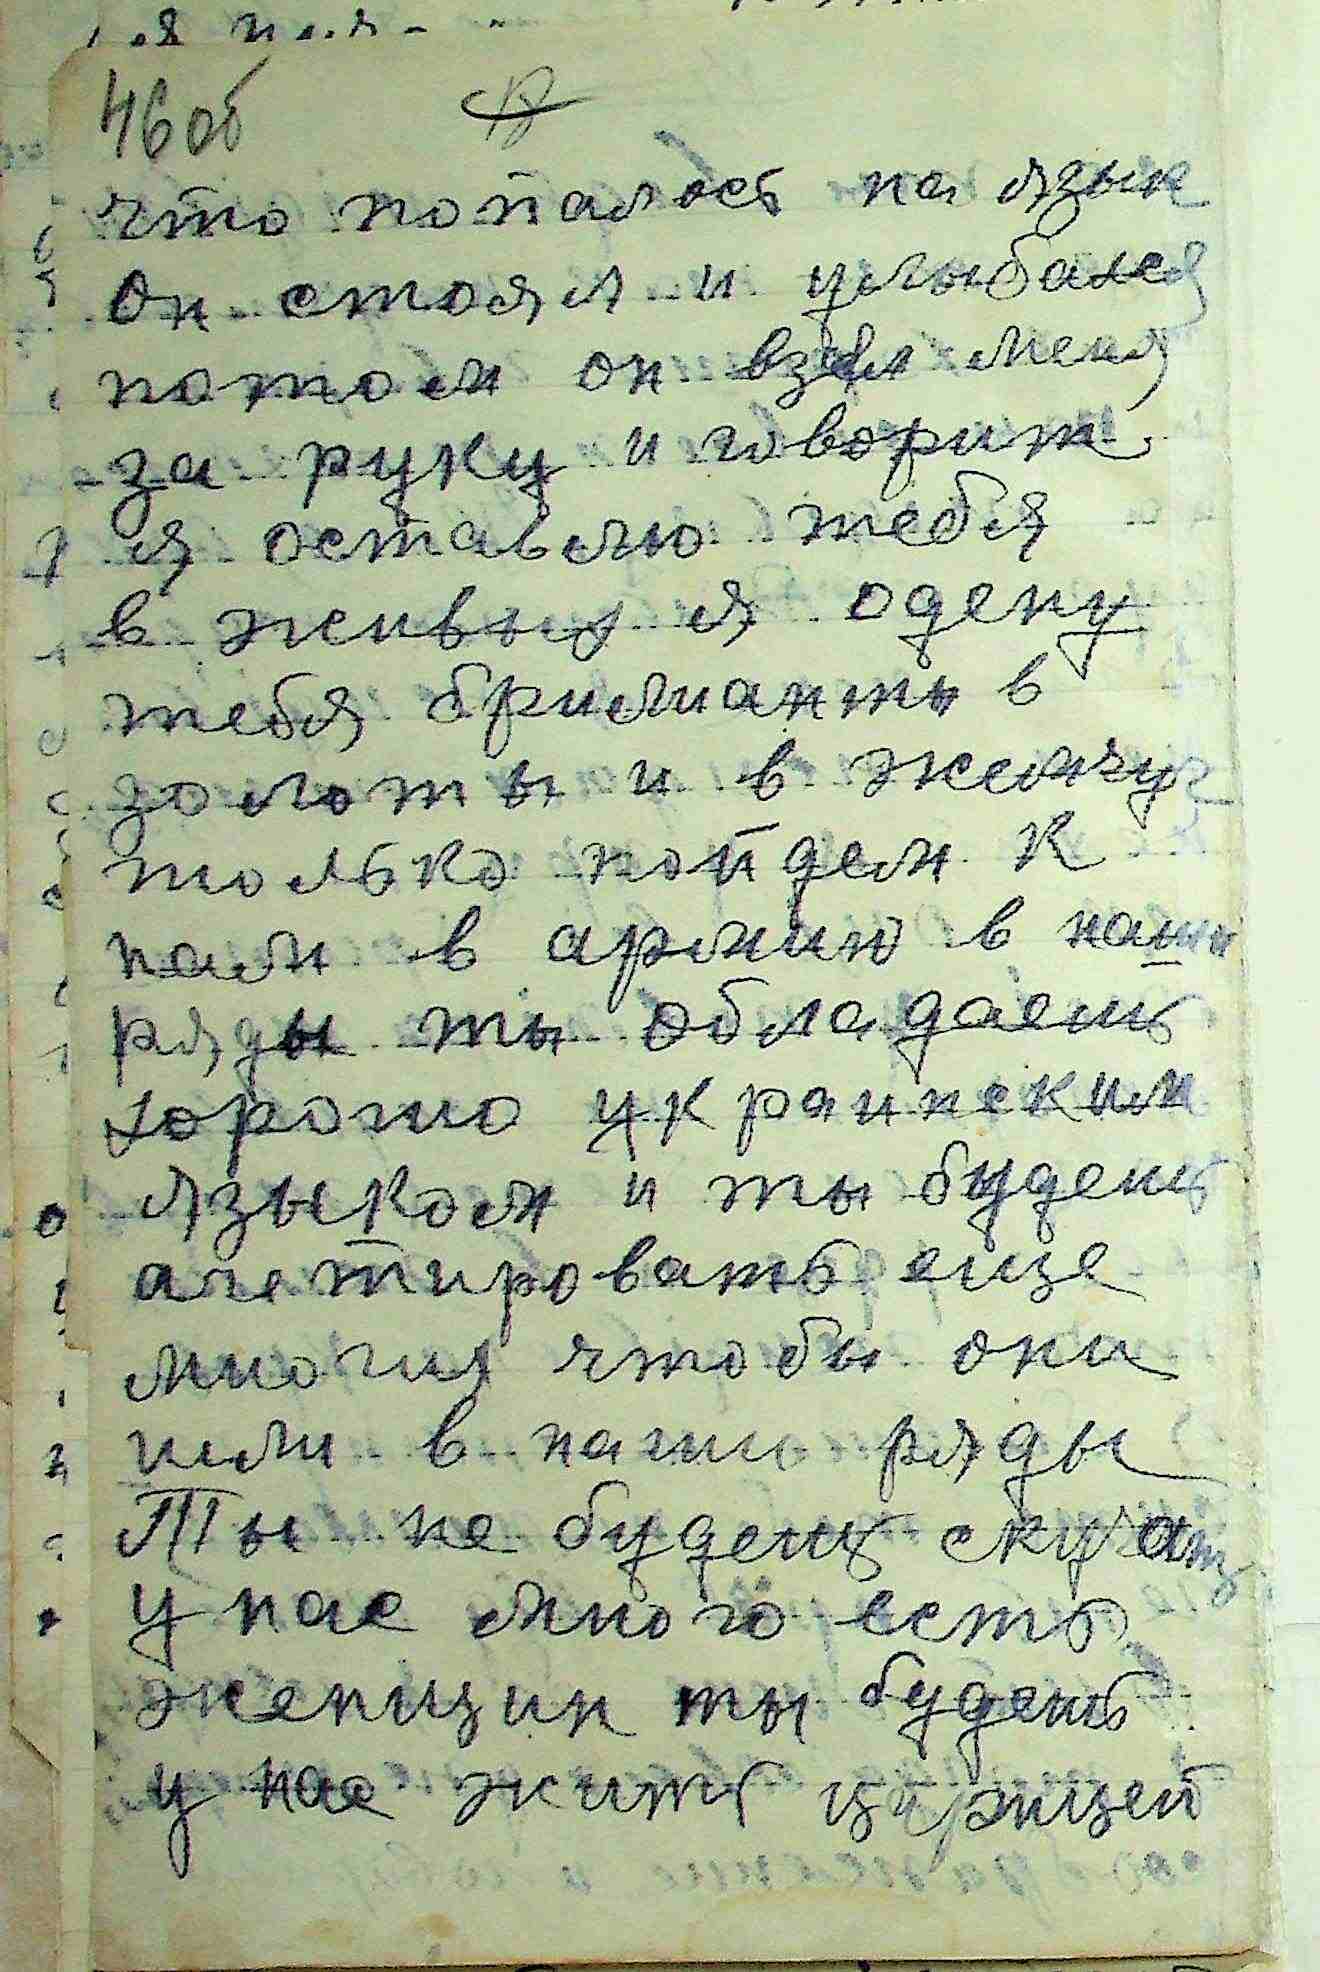 46об
что попалось на язык
он стоял и улыбался
потом он взял меня
за руку и говорит
я оставлю тебя
в живых я одену
тебя брилианты в
золоты и в жемчуг
только пойдем к
нам в армию в наши
ряды ты обладаеш
хорошо украинским
языком и ты будешь
агетировать еще
многих чтобы они
шли в нашо ряды
Ты не будешь скучать
у нас много есть
женщин ты будешь
у нас жить царицей